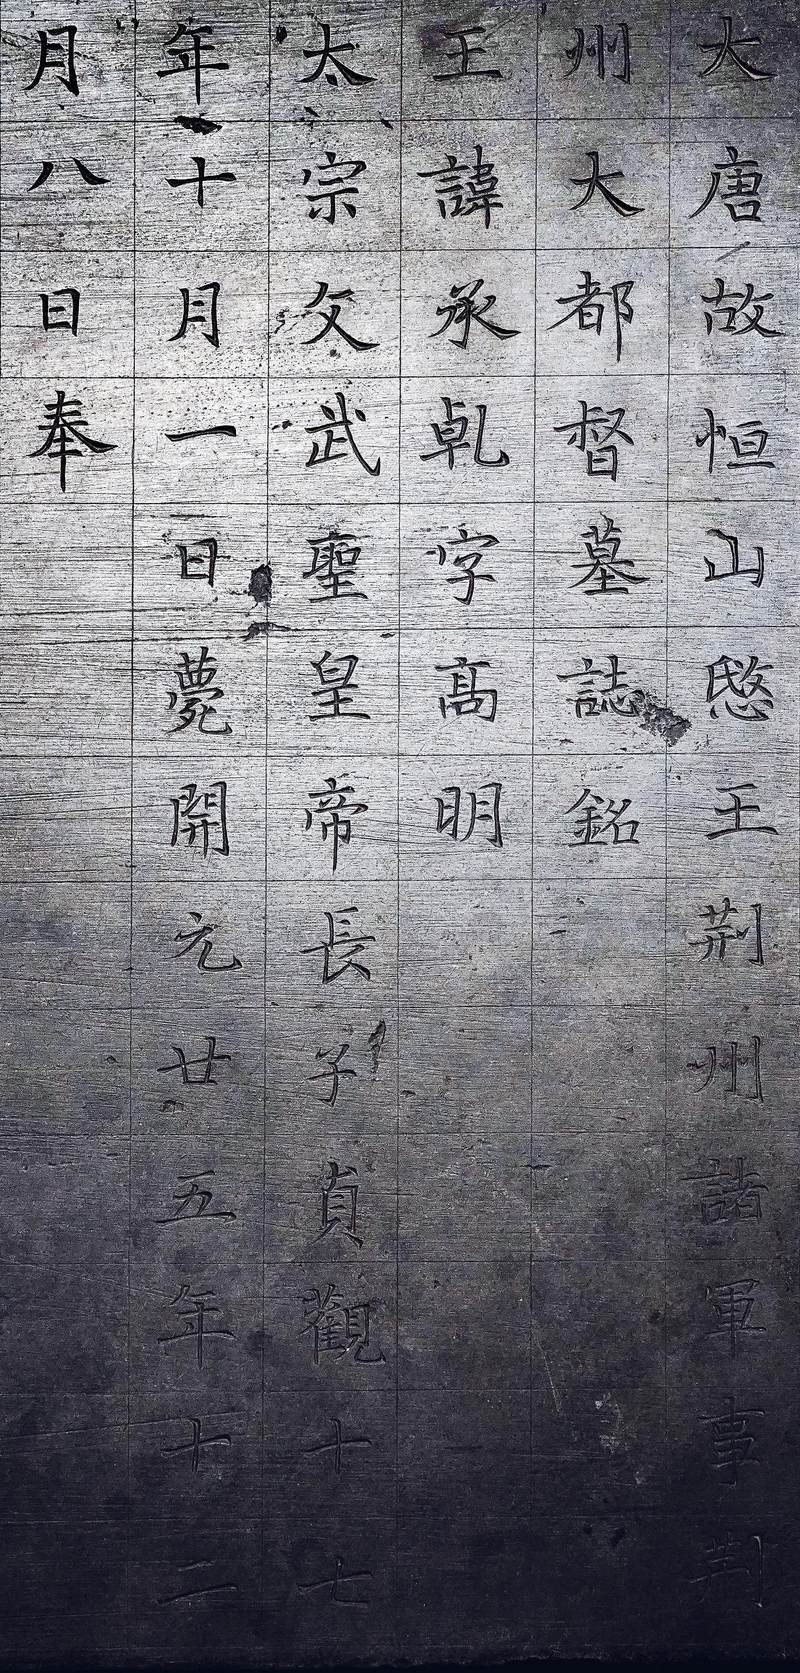 大唐故恒山愍王荆州諸軍事荆
州大都督墓誌銘
王諱承乹字高明
太宗文武聖皇帝長子貞觀十七
年十月一日薨開元廿五年十二
月八日奉